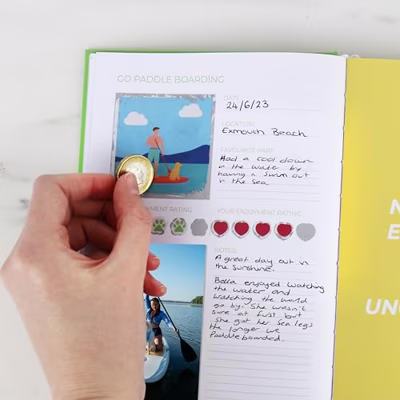 GO PADDLE BOARDING
DATE:
24/6/23
LOCATION:
Exmouth Beach
FAVOURITE PART:
Had a cool down
in the water by
having a swim out
in the sea.
MENT RATING
YOUR ENJOYMENT RATING
NOTES:
A great day out in
the sunshine.
Bella enjoyed watching
the water and
watching the world
go by. She wasn't
sure at first but
she got her sea legs
the longer we
Paddleboarded.
N
E
UN